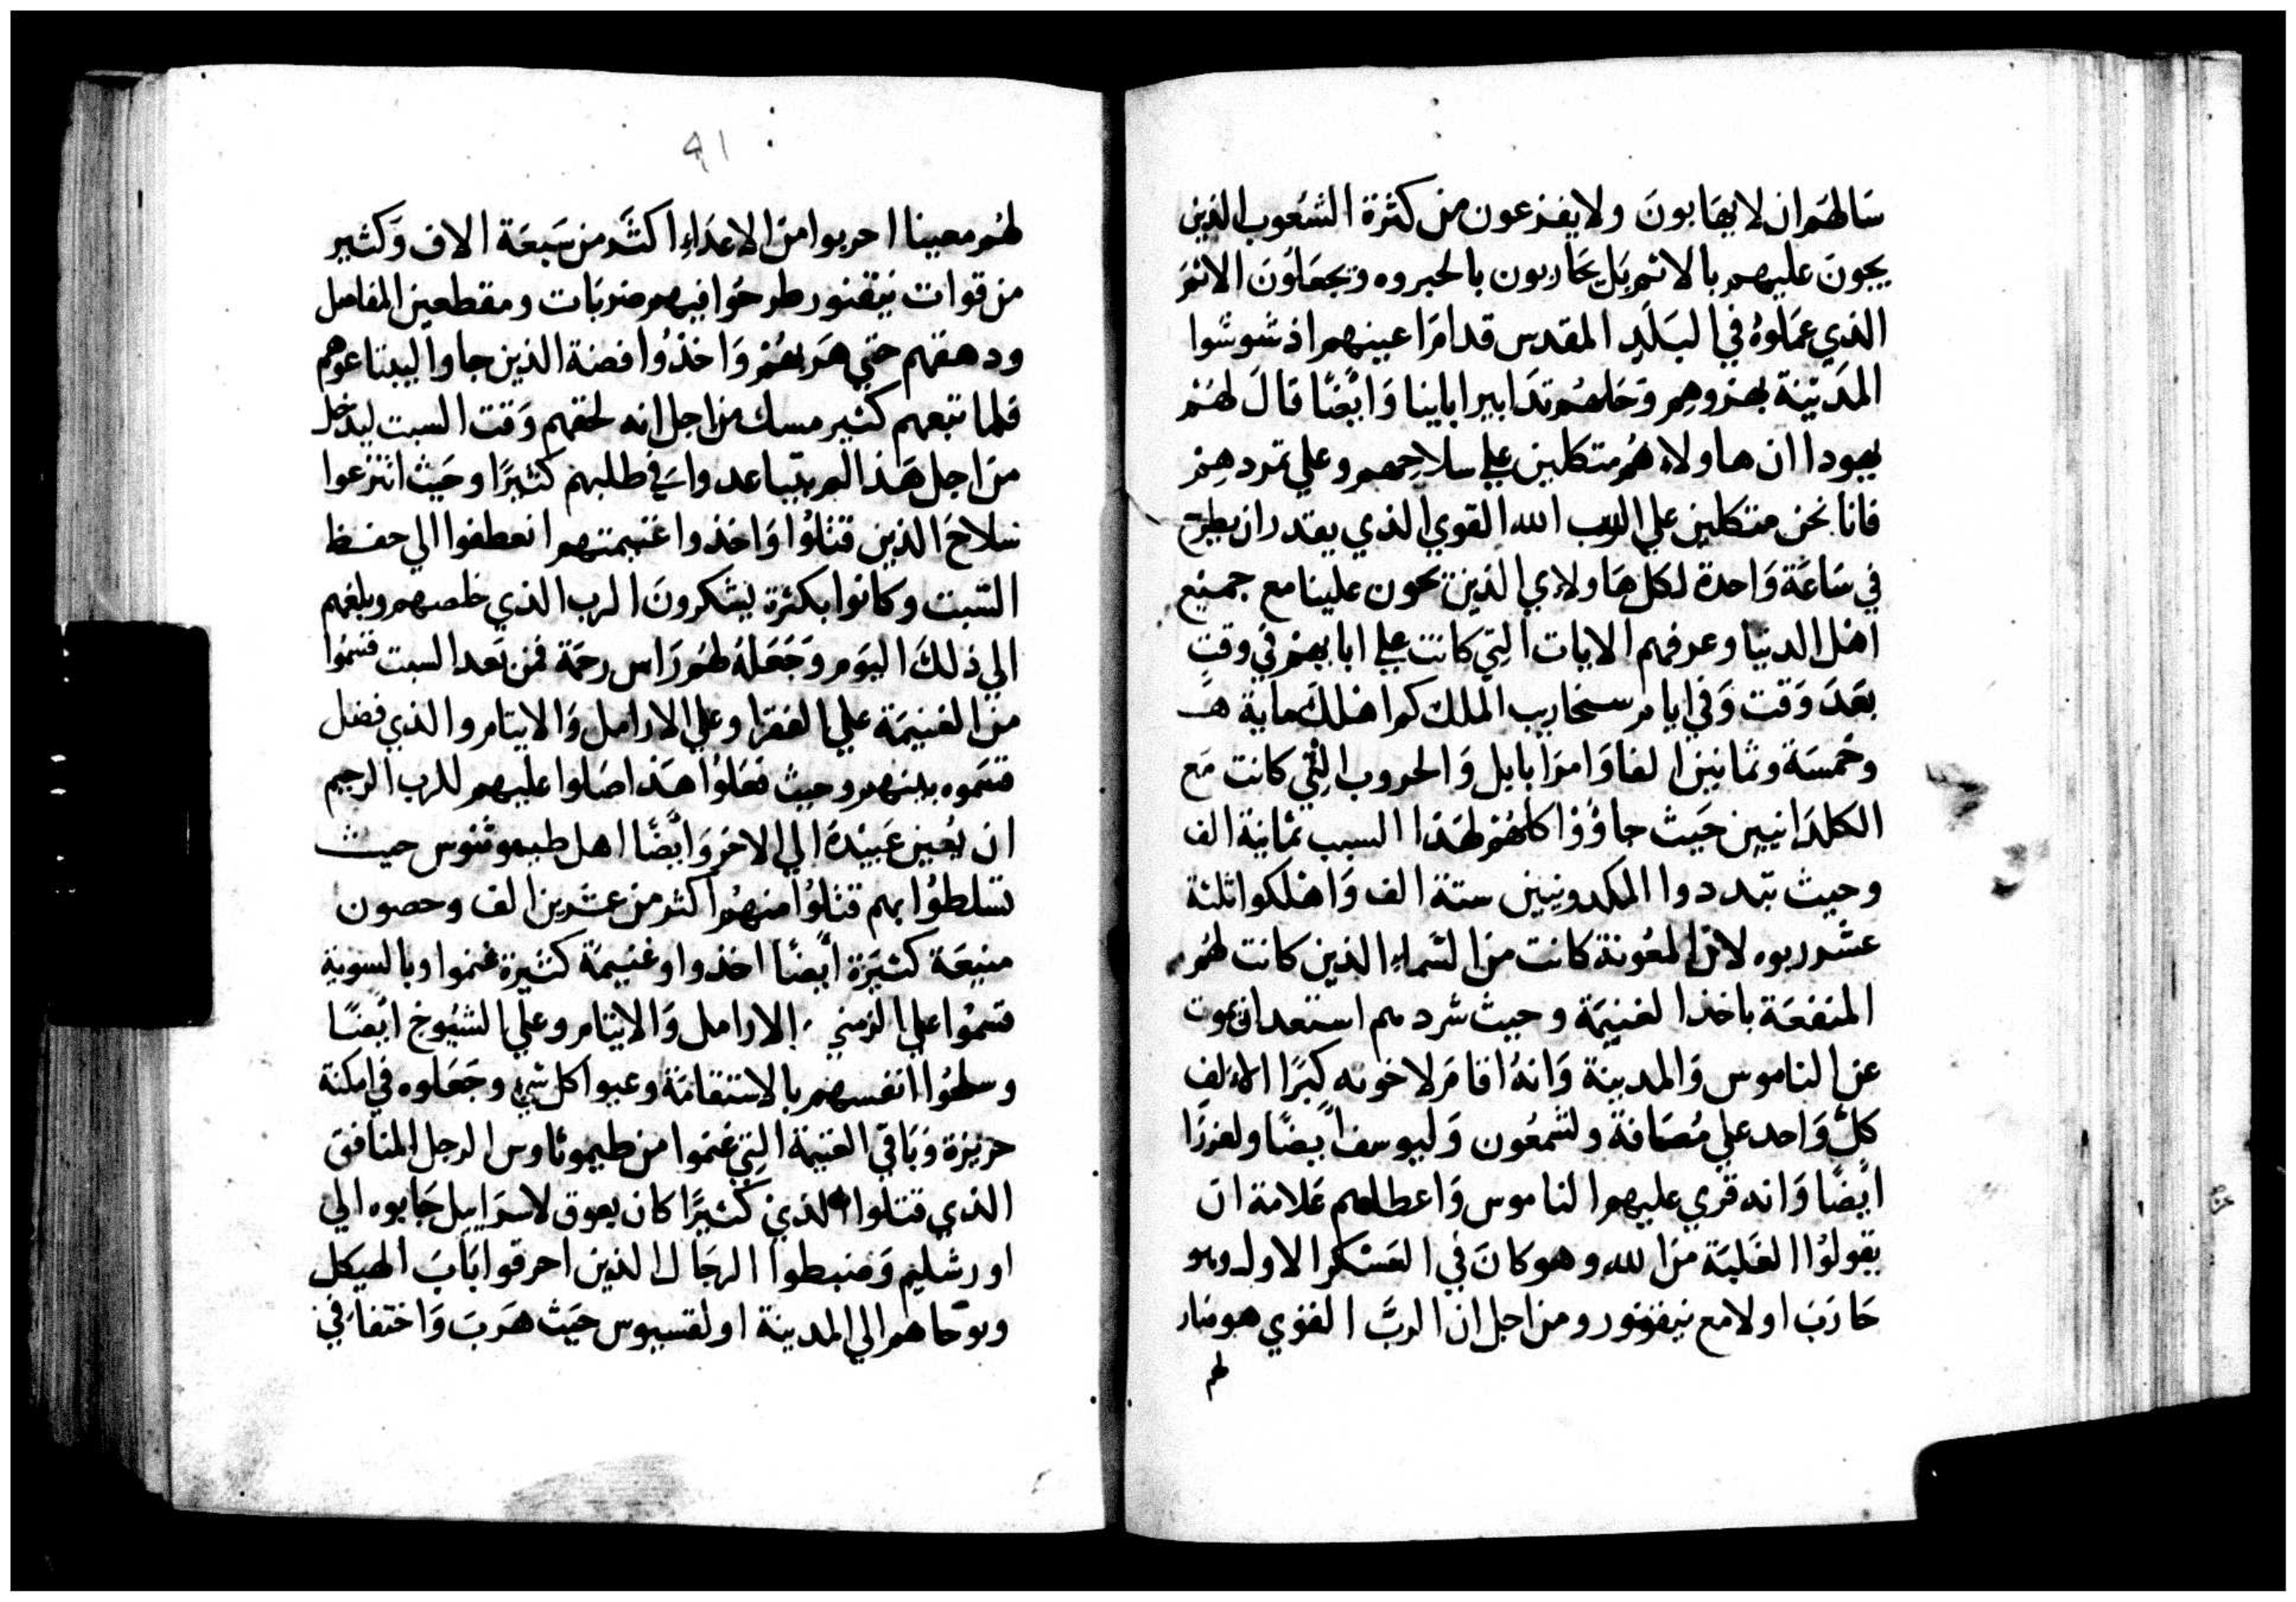 سَالهَم ان لا يهَابونَ ولا يفزعون من كثرة الشعُوب الذين
يجونَ عليهم بالاثم بَل يحَاربون بالجبروه ويجعَلوُنَ الاثمَ
الذي عمَلوهُ في البَلَدِ المقدس قدامَ اعينهم اذ شوشوا
المدَينَة بهزوهِم وَحَلهُم تدَابير اباينا وَايضًا قالَ لهَم
يهودا ان هاولاء هُم متكلين علي سلاحِهم وعلي تمردهِم
فانا نحن متكلين علي الرب الله القوي الذي يقدر ان يطرح
في سَاعَة وَاحدة لكل هَاولاي الذين يجون علينا مع جميع
اهل الدنيا وعرفهم الايات التي كانت علي ابايهم في وقتٍ
بعَدَ وَقت وَفي ايام سنحاريب الملك كوا هلك ماية
وخمسَة وثمانين الفا وَامرَ بابل وَالحروب التِي كانت مَع
الكلدَانيين حَيث جاوُوا كلهُم لهَذا السبب ثمانية الف
وحيث تبددوا المكدونيين ستة الف وَاهلكوا ثلثة
عشر ربوه لان المعُونة كانت من السَماء الذين كانت لهُم
المنفعَة باخذ الغنيَمة وحيث شردهم استعد ان يموت
عن الناموس وَالمدينة وَانهُ اقامَ لاخوته كبَرا الالف
كلّ وَاحد علي مُصَافة ولشمعُون وَليوسف ايضًا ولعزرَا
ايضًا وَانه قري عليهم الناموس وَاعطاهم عَلامة ان
يقولوُا الغَلبَة منَ الله وهو كانَ في العَسْكر الاول وهو
حَارَبَ اولا مع نيقنور ومن اجل ان الربَّ القوي هو صار
لهم
٩١
لهُم معينا احربوا من الاعدَاء اكثَر من سَبعَة الاف وَكثير
من قوات نيقنور طرحُوا فيهم ضربَات ومقطعين المفاصل
ودهقهم حتي هَربهُم وَاخذوُا فضة الذين جاوا ليبتاعوهم
فلما تبعهم كثير مسك من اجل انه لحقهم وَقت السبت ليدخل
من اجل هَذا لم يتباعدوا في طلبهم كثيرًا وحَيث انتزعوا
سلاحَ الذين قتلوُا وَاخذوا غنيمتهم انعطفوا الي حفظ
السَبت وكانوا بكثرة يشكرونَ الرب الذي خلصهم وبلغهم
الي ذلكَ اليَوم وَجَعَلهُ لهُم رَاس رحمَة فمن بَعد السبت قسمُوا
من الغنيمَة علي الفقرا وعلي الارامل وَالايتام والذي فضل
قسَموه بينهم وحيث فعَلوُا هَذا صَلوا عليهم للرب الرحيم
ان يُعين عَبيدهُ الي الاخر وَايضًا اهل طيموثوس حيث
تسلطوُا بهم قتلوُا منهُم اكثر من عشرين الف وحصون
منيعَة كثيَرة ايضًا اخذوا وغنيمَة كثيرة غنموا وبالسوية
قسموُا علي الزمني الارامل وَالايتام وعلي الشيُوخ ايضًا
وسلحوُا انفسهم بالاستقامَة وعبوا كل شي وجَعَلوه في امكنة
حريزة وَبَاقي الغنيمة التِي غنموا من طيموثاوس الرجل المنافق
الذي قتلوا الذي كثيرًا كان يعوق لاسرَاييل جَابوه الي
اورشليم وَضبطوا الرجَال الذين احرقوا بَابَ الهيكل
وتوحاهم الي المدينة اولقسيوس حَيث هَربَ وَاختفا في